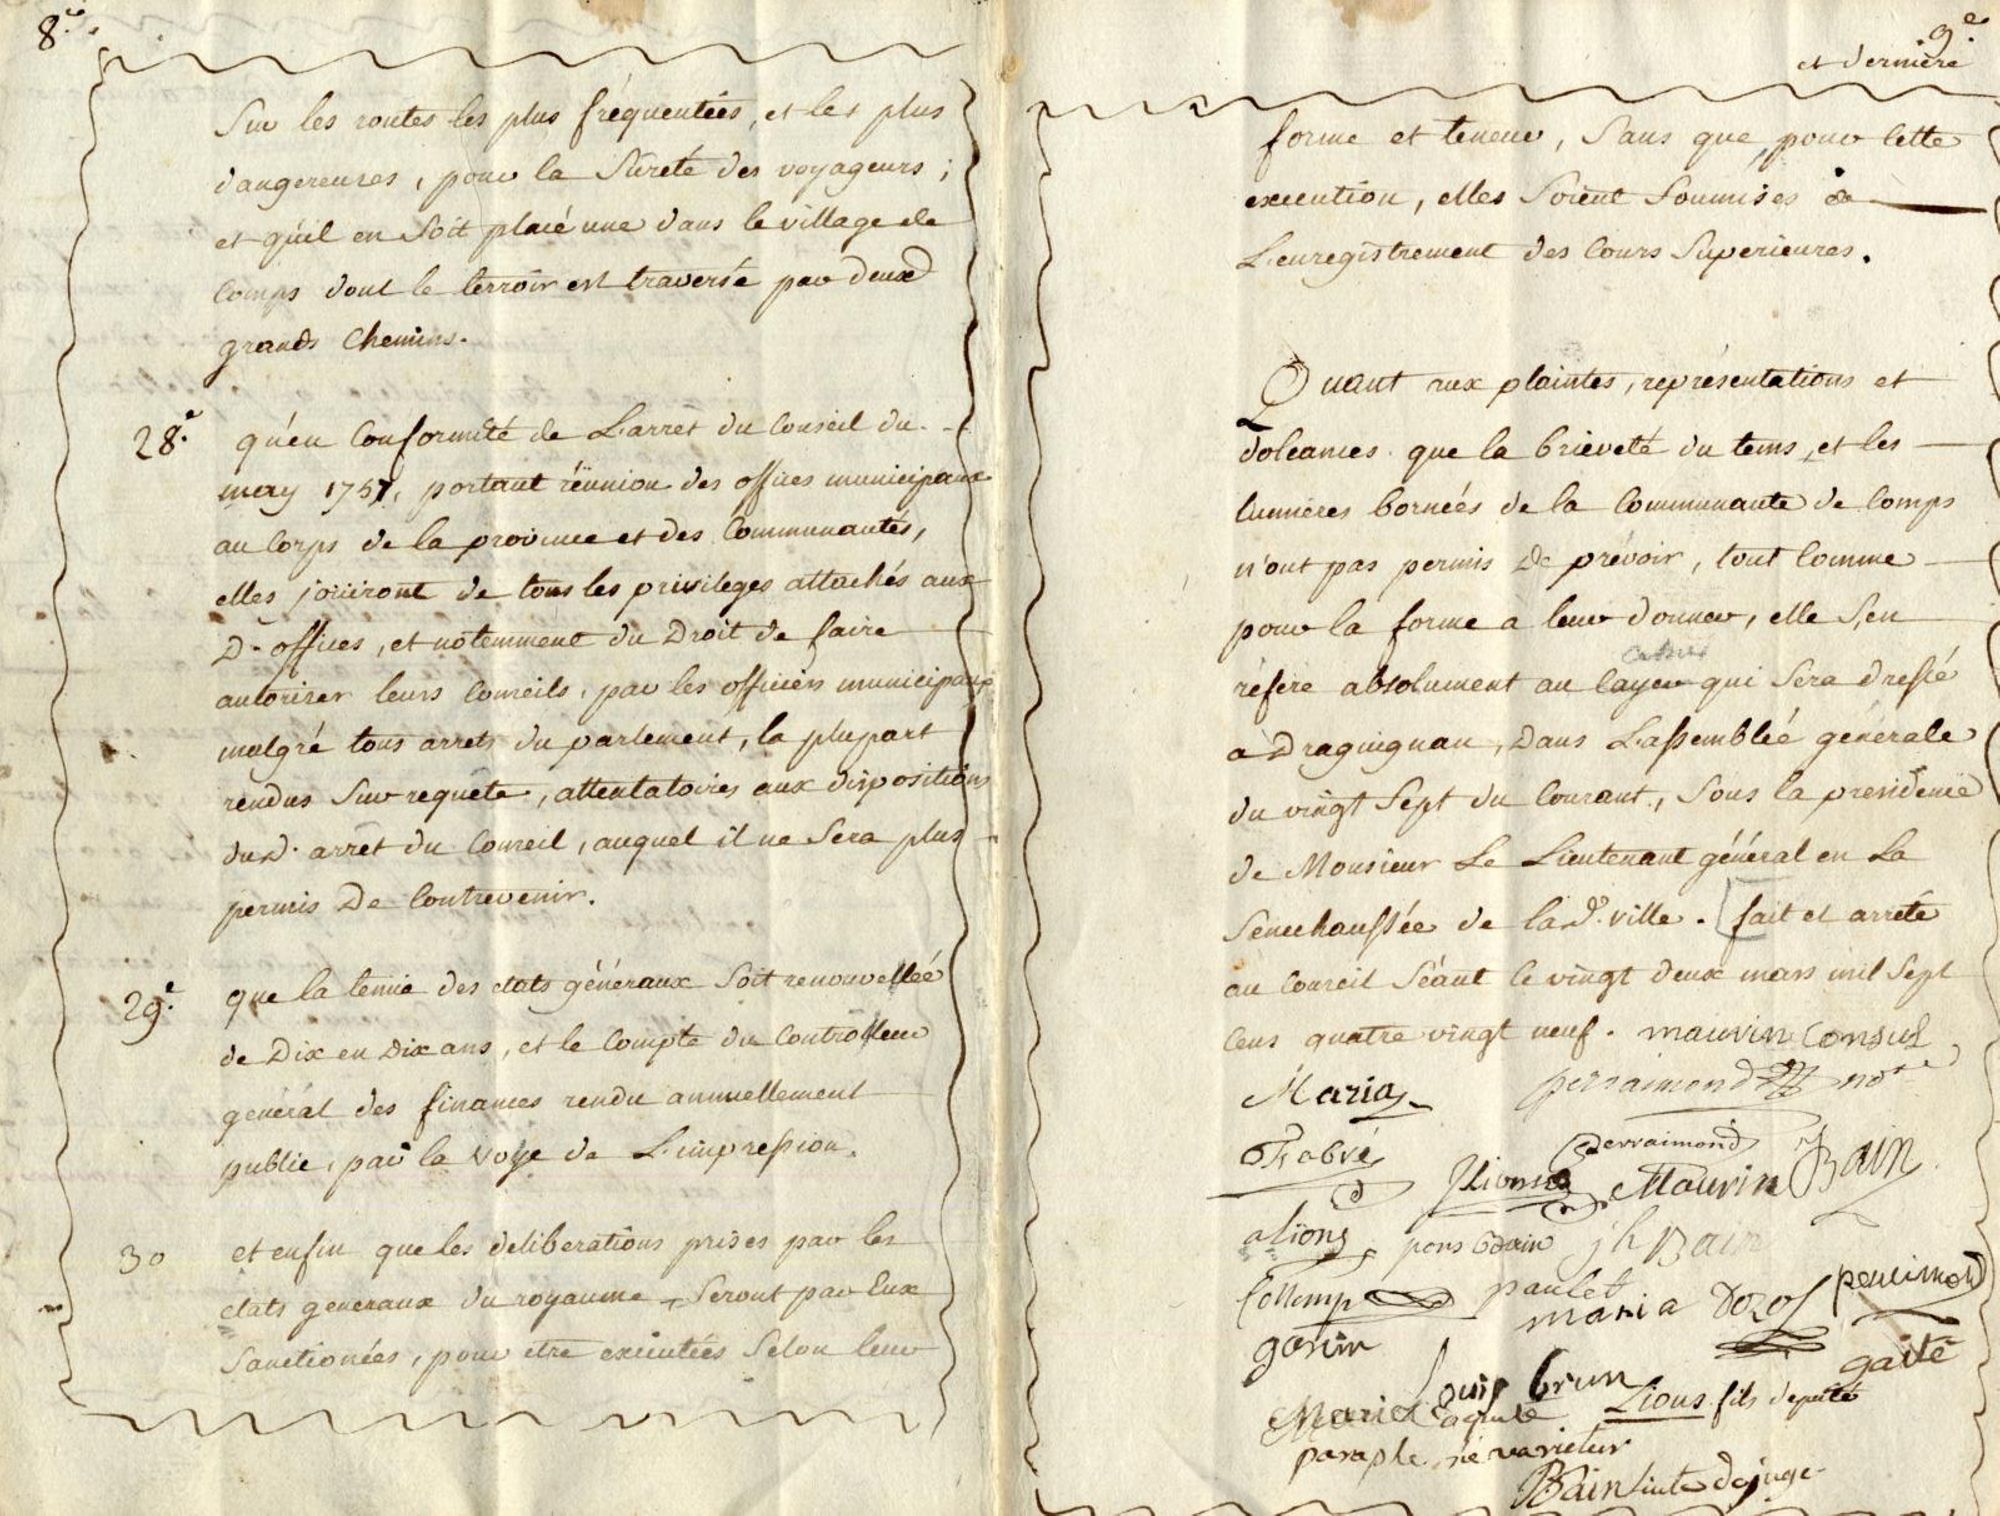 8.e
Sur les routes les plus fréquentées, et les plus
dangereuses, pour la Sureté des voyageurs ;
et qu'il en Soit placé une dans le village de
Comps dont le terroir est traversé par deux
grands Chemins.
28.e qu'en Conformité de L'arret du Conseil du
may 1757, portant réunion des offices municipaux
au Corps de la province et des Communautés,
elles joüiront de tous les privileges attachés aux
D. offices, et notemment du Droit de faire
autoriser leurs Conseils, par les officiers municipaux
malgré tous arrets du parlement, la plupart
rendus Sur requête, attentatoires aux dispositions
dud. arrêt du Conseil, auquel il ne Sera plus
permis De Contrevenir.
29.e que la tenüe des etats généraux Soit renouvellée
de Dix en Dix ans, et le Compte du Controlleur
général des finances rendu annuellement
public, par la voye de L'impression.
30 et enfin que les deliberations prises par les
etats generaux du royaume, Seront par Eux
Sanctionées, pour etre exécutées Selon leur
9.e
et derniere
forme et teneur, Sans que pour Cette
execution, elles Soient Soumises a
L'enregistrement des Cours Superieures.
Quant aux plaintes, représentations et
doleances que la brieveté du tems, et les
lumieres bornées de la Communauté de Comps
n'ont pas permis De prévoir, tout Comme
pour la forme a leur donner, elle S'en
réfere absolument au Cayer qui Sera dressé
a Draguignan, Dans L'assemblée générale
du vingt Sept du Courant, Sous la presidence
de Monsieur Le Lieutenant général en La
Senechaussée de lad.e ville. fait et arrêté
au Conseil Séant le vingt deux mars mil Sept
Cens quatre vingt neuf. maurin Consul
Maria perraimond not.re
Fabre perraimond
Lions Maurin Bain
alions pons Bain jh Bain
Collomp paulet perrimond
maria
garin gaité
Louis brun
Lions fils deputé
paraphe ne varietur
Bain Lint. de juge